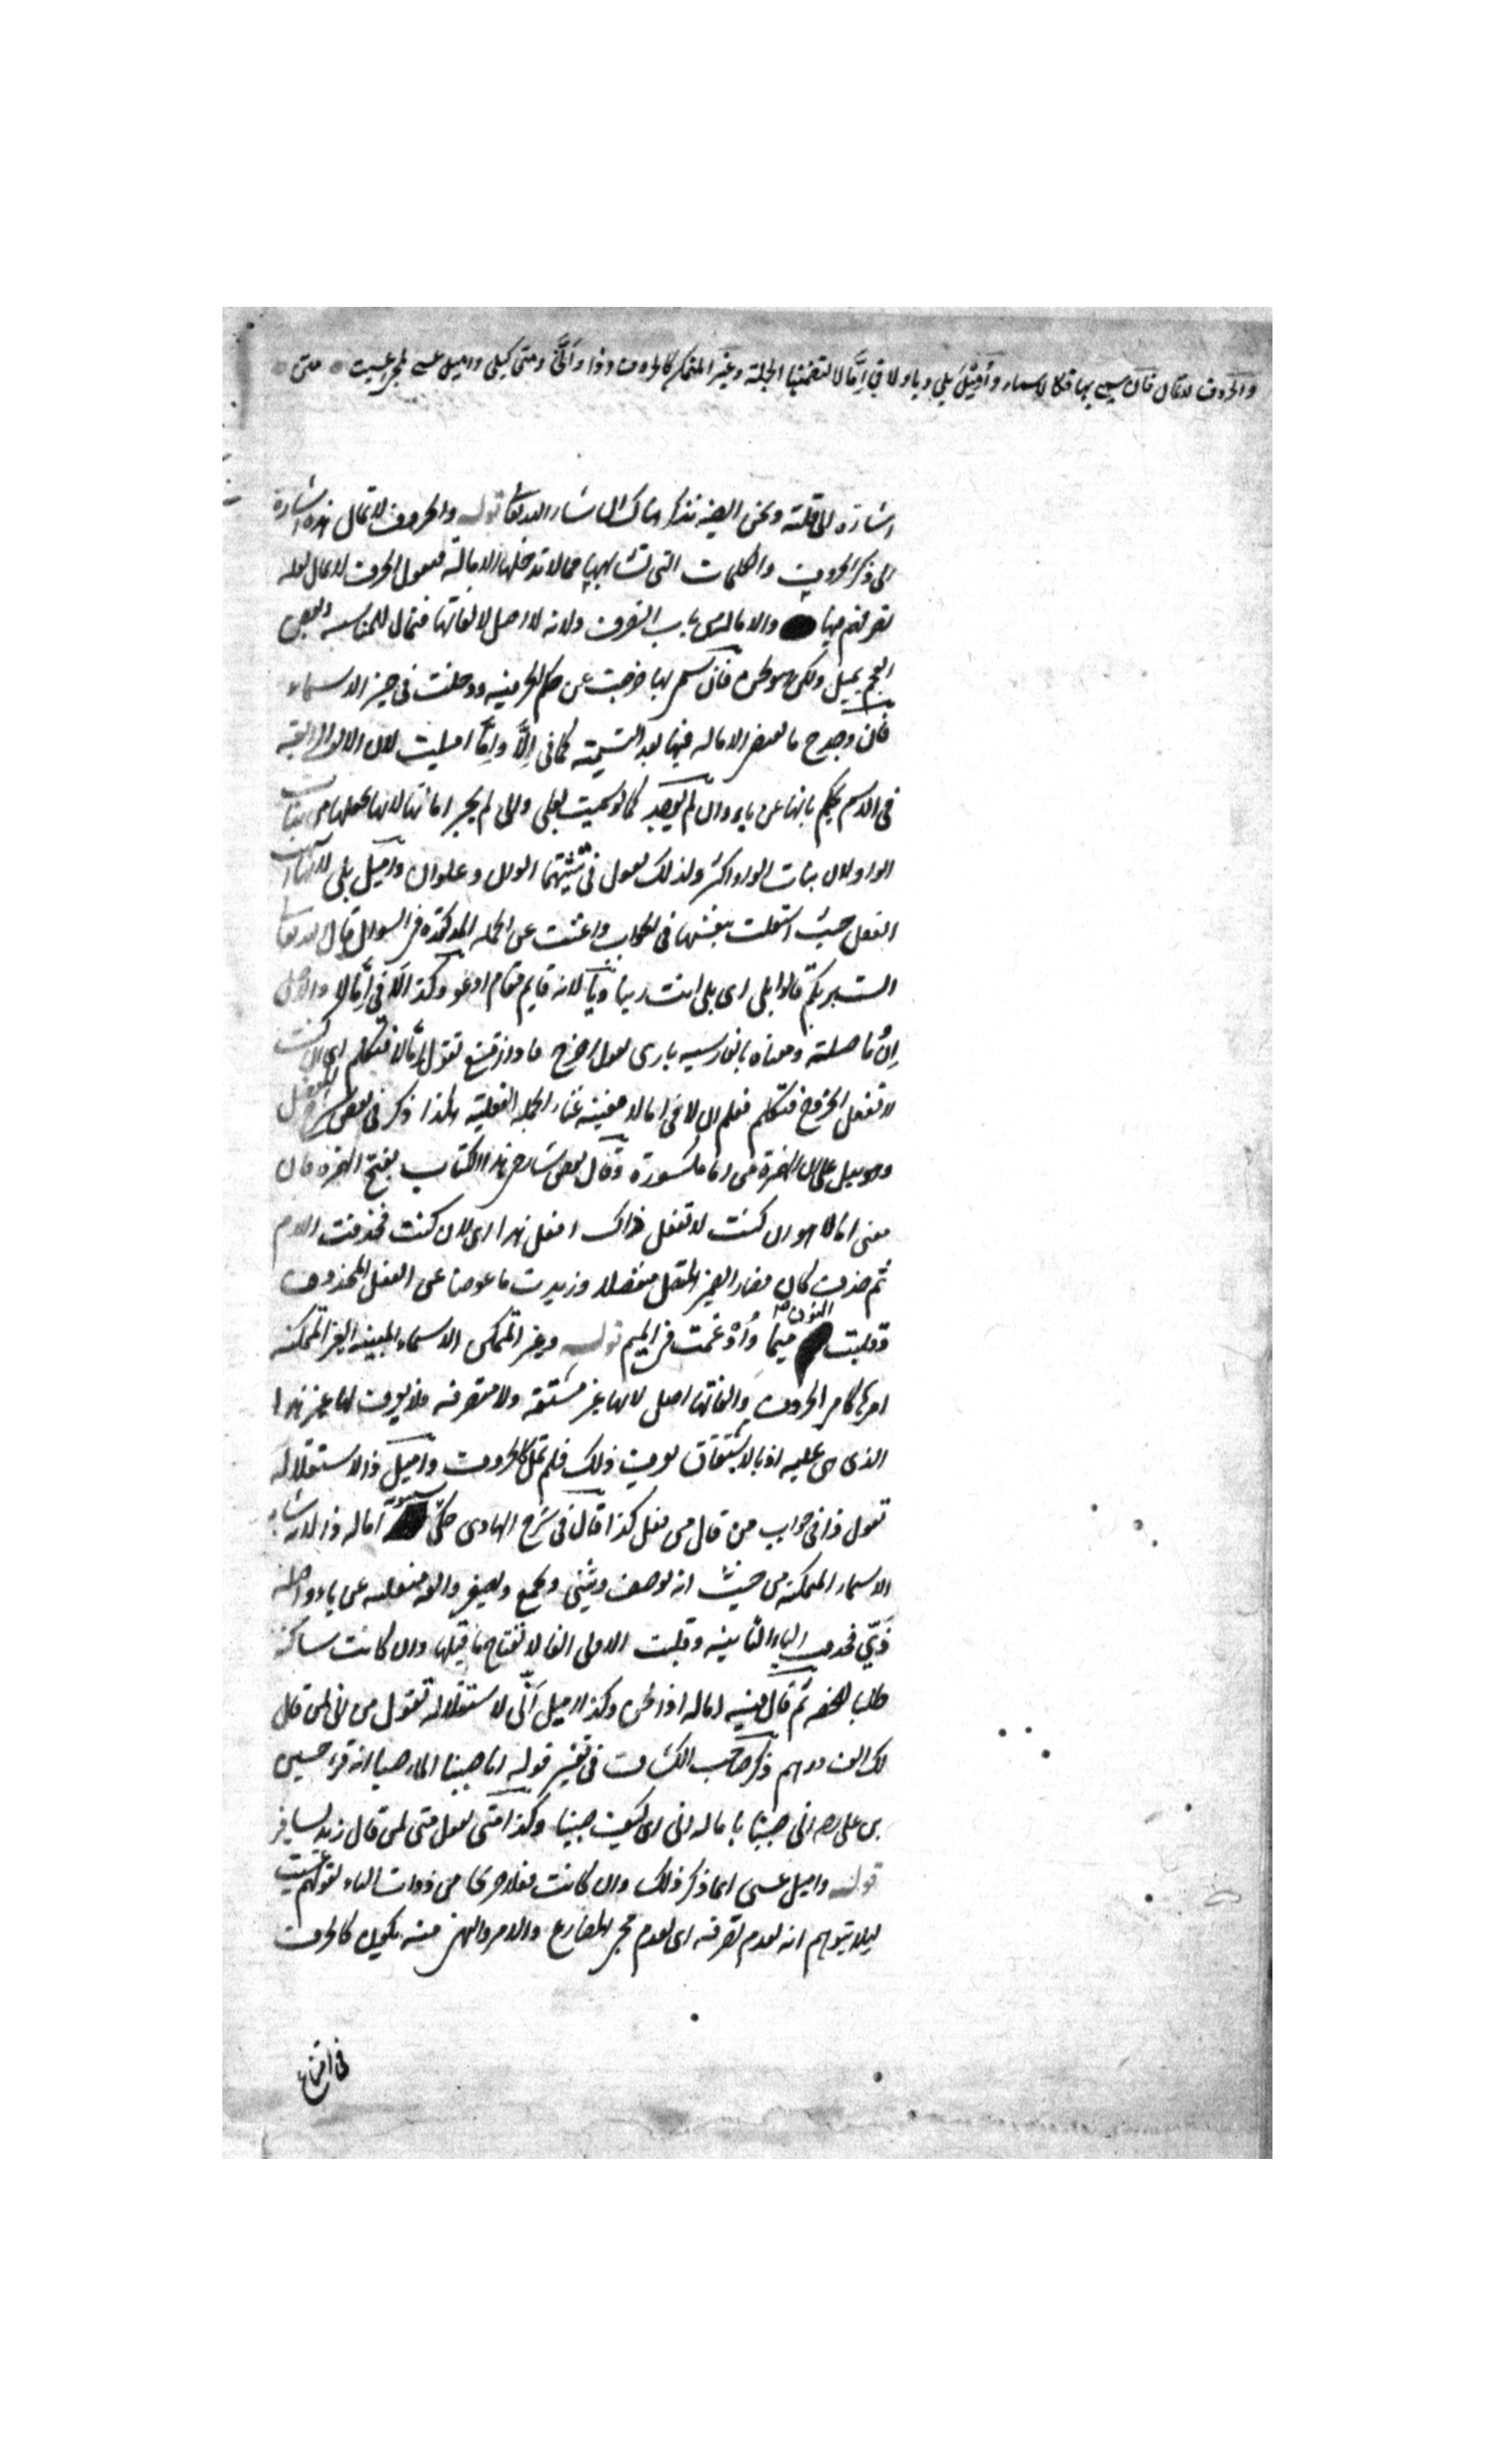 والحروف لا تمال فان سمي بها فكالاسماء واميل بلى ويا ولا في إمّا لا لتضمنها الجملة وغير المتمكن كالحروف وذا وأنّى ومتى كبلى واميل عسى لمجئ عسيت متن
اشارة الى قلته ونحن ايضا نذكر هناك ان شاء الله تعالى قوله والحروف لا تمال هذه اشارة
الى ذكر الحروف والكلمات التي تشابهها مما لا تدخلها الامالة فنقول الحرف لا تمال لقلة
تصرفهم فيها والامالة من باب التصرف ولانه لا اصل لالفاتها فتمال للمناسبة وبعض
العجم يميل ولكن هو لحن فان سمى بها خرجت عن حكم الحرفية ودخلت في حيز الاسماء
فان وجد ح ما يقتضي الامالة فيها بعد التسمية كما في إلّا وإمّا اميلت لان الالف الرابعة
في الاسم يحكم بانها عن ياء وان لم يوجد كما لو سميت بعلى والى لم يجز امالتها لانها يجعلها من بنات
الواو لان بنات الواو اكثر ولذلك تقول في تثنيتهما الوان وعلوان واميل بلى لانها
الفعل حيث استقلت بنفسها في الجواب واغنت عن الجملة المذكورة في السؤال قال الله تعالى
الست بربكم قالوا بلى اى بلى انت ربنا ويا لانه قايم مقام ادعو وكذا لا في إمّا لا والاصل
إن ما صلته ومعناه بالفارسيه بارى تقول اخرج فاذا امتنع تقول إمّا لا فتكلم اى ان كنت
لا تفعل الخروج فتكلم فعلم ان لا في اما لا مغنية غناء الجملة الفعلية هكذا ذكر في بعض شروح المفصل
وهو دليل على ان الهمزة في اما مكسورة وقال بعض شارحي هذا الكتاب بفتح الهمزة فان
معنى اما لا هو ان كنت لا تفعل ذاك افعل هذا اى لان كنت فحذفت اللام
ثم حذفت كان فصار الضمير المتصل منفصلا وزيدت ما عوضا عن الفعل المحذوف
فقلبت النون ميما وأدغمت في الميم قوله وغير المتمكن الاسماء المبنية الغير المتمكنة
امرها كامر الحروف والفاتها اصل لانها غير مشتقة ولا متصرفة فلا يعرف لها غير هذا
الذى هى عليه اذ بالاشتقاق يعرف ذلك فلم تمل كالحروف واميل ذا لاستقلاله
تقول ذا في جواب من قال من فعل كذا قال في شرح الهادى حكى سيبويه امالة ذا لانه شابه
الاسماء المتمكنة من حيث انه يوصف ويثنى ويجمع ويصغر والفه منقلبة عن ياء واصله
ذيّى فحذف الياء الثانية وقلبت الاولى الفا لانفتاح ما قبلها وان كانت ساكنة
طلبا للخفة ثم قال فيه امالة اذا لحن وكذا اميل أنّى لاستقلاله تقول من انى لمن قال
لك الف درهم ذكر صاحب الكشاف في تفسير قوله انا صببنا الماء صبا انه قرء حسين
بن على رضه انى صببنا بامالة انى اى كيف صببنا وكذا متى تقول متى لمن قال زيد يسافر
قوله واميل عسى انما ذكر ذلك وان كانت فعلا صريحا من ذوات الياء لقولهم عسيت
ليلا يتوهم انه لعدم تصرفه اى لعدم مجئ المضارع والامر والنهى منه يكون كالحرف
في امتناع